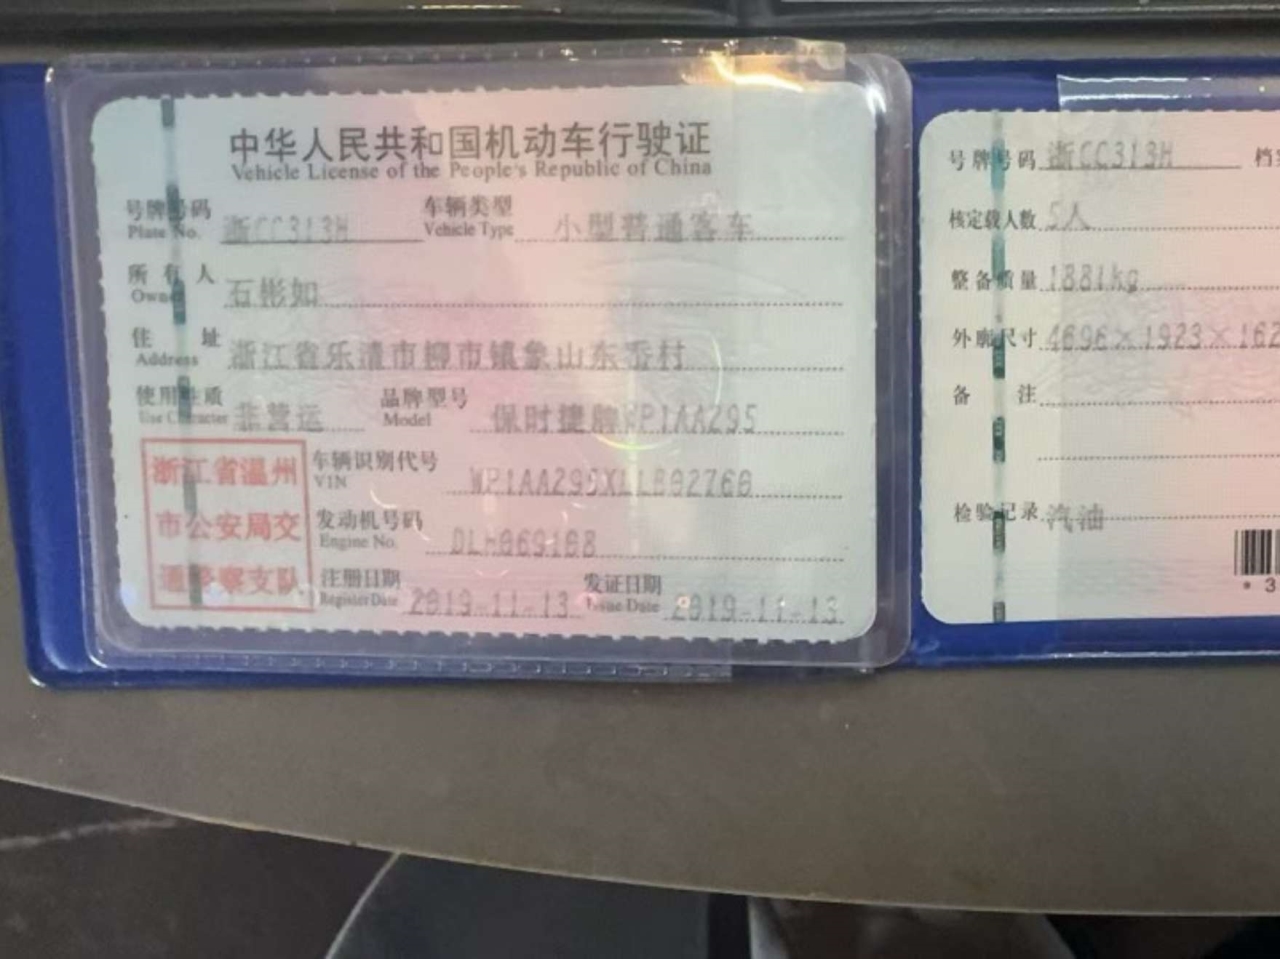 中华人民共和国机动车行驶证
Vehicle License of the People's Republic of China
号牌号码 浙CC313H 车辆类型 小型普通客车
Plate No. Vehicle Type
所有人 石彬如
Owner
住址 浙江省乐清市柳市镇象山东岙村
Address
使用性质 非营运 品牌型号 保时捷牌WP1AA295
Use Character Model
浙江省温州
市公安局交
通警察支队
车辆识别代号
VIN
发动机号码
Engine No.
注册日期 2019-11-13 发证日期 2019-11-13
Register Date Issue Date
号牌号码 浙CC313H
核定载人数 5人
整备质量 1881kg
外廓尺寸 4696×1923×162
备注
检验记录 汽油
* 3